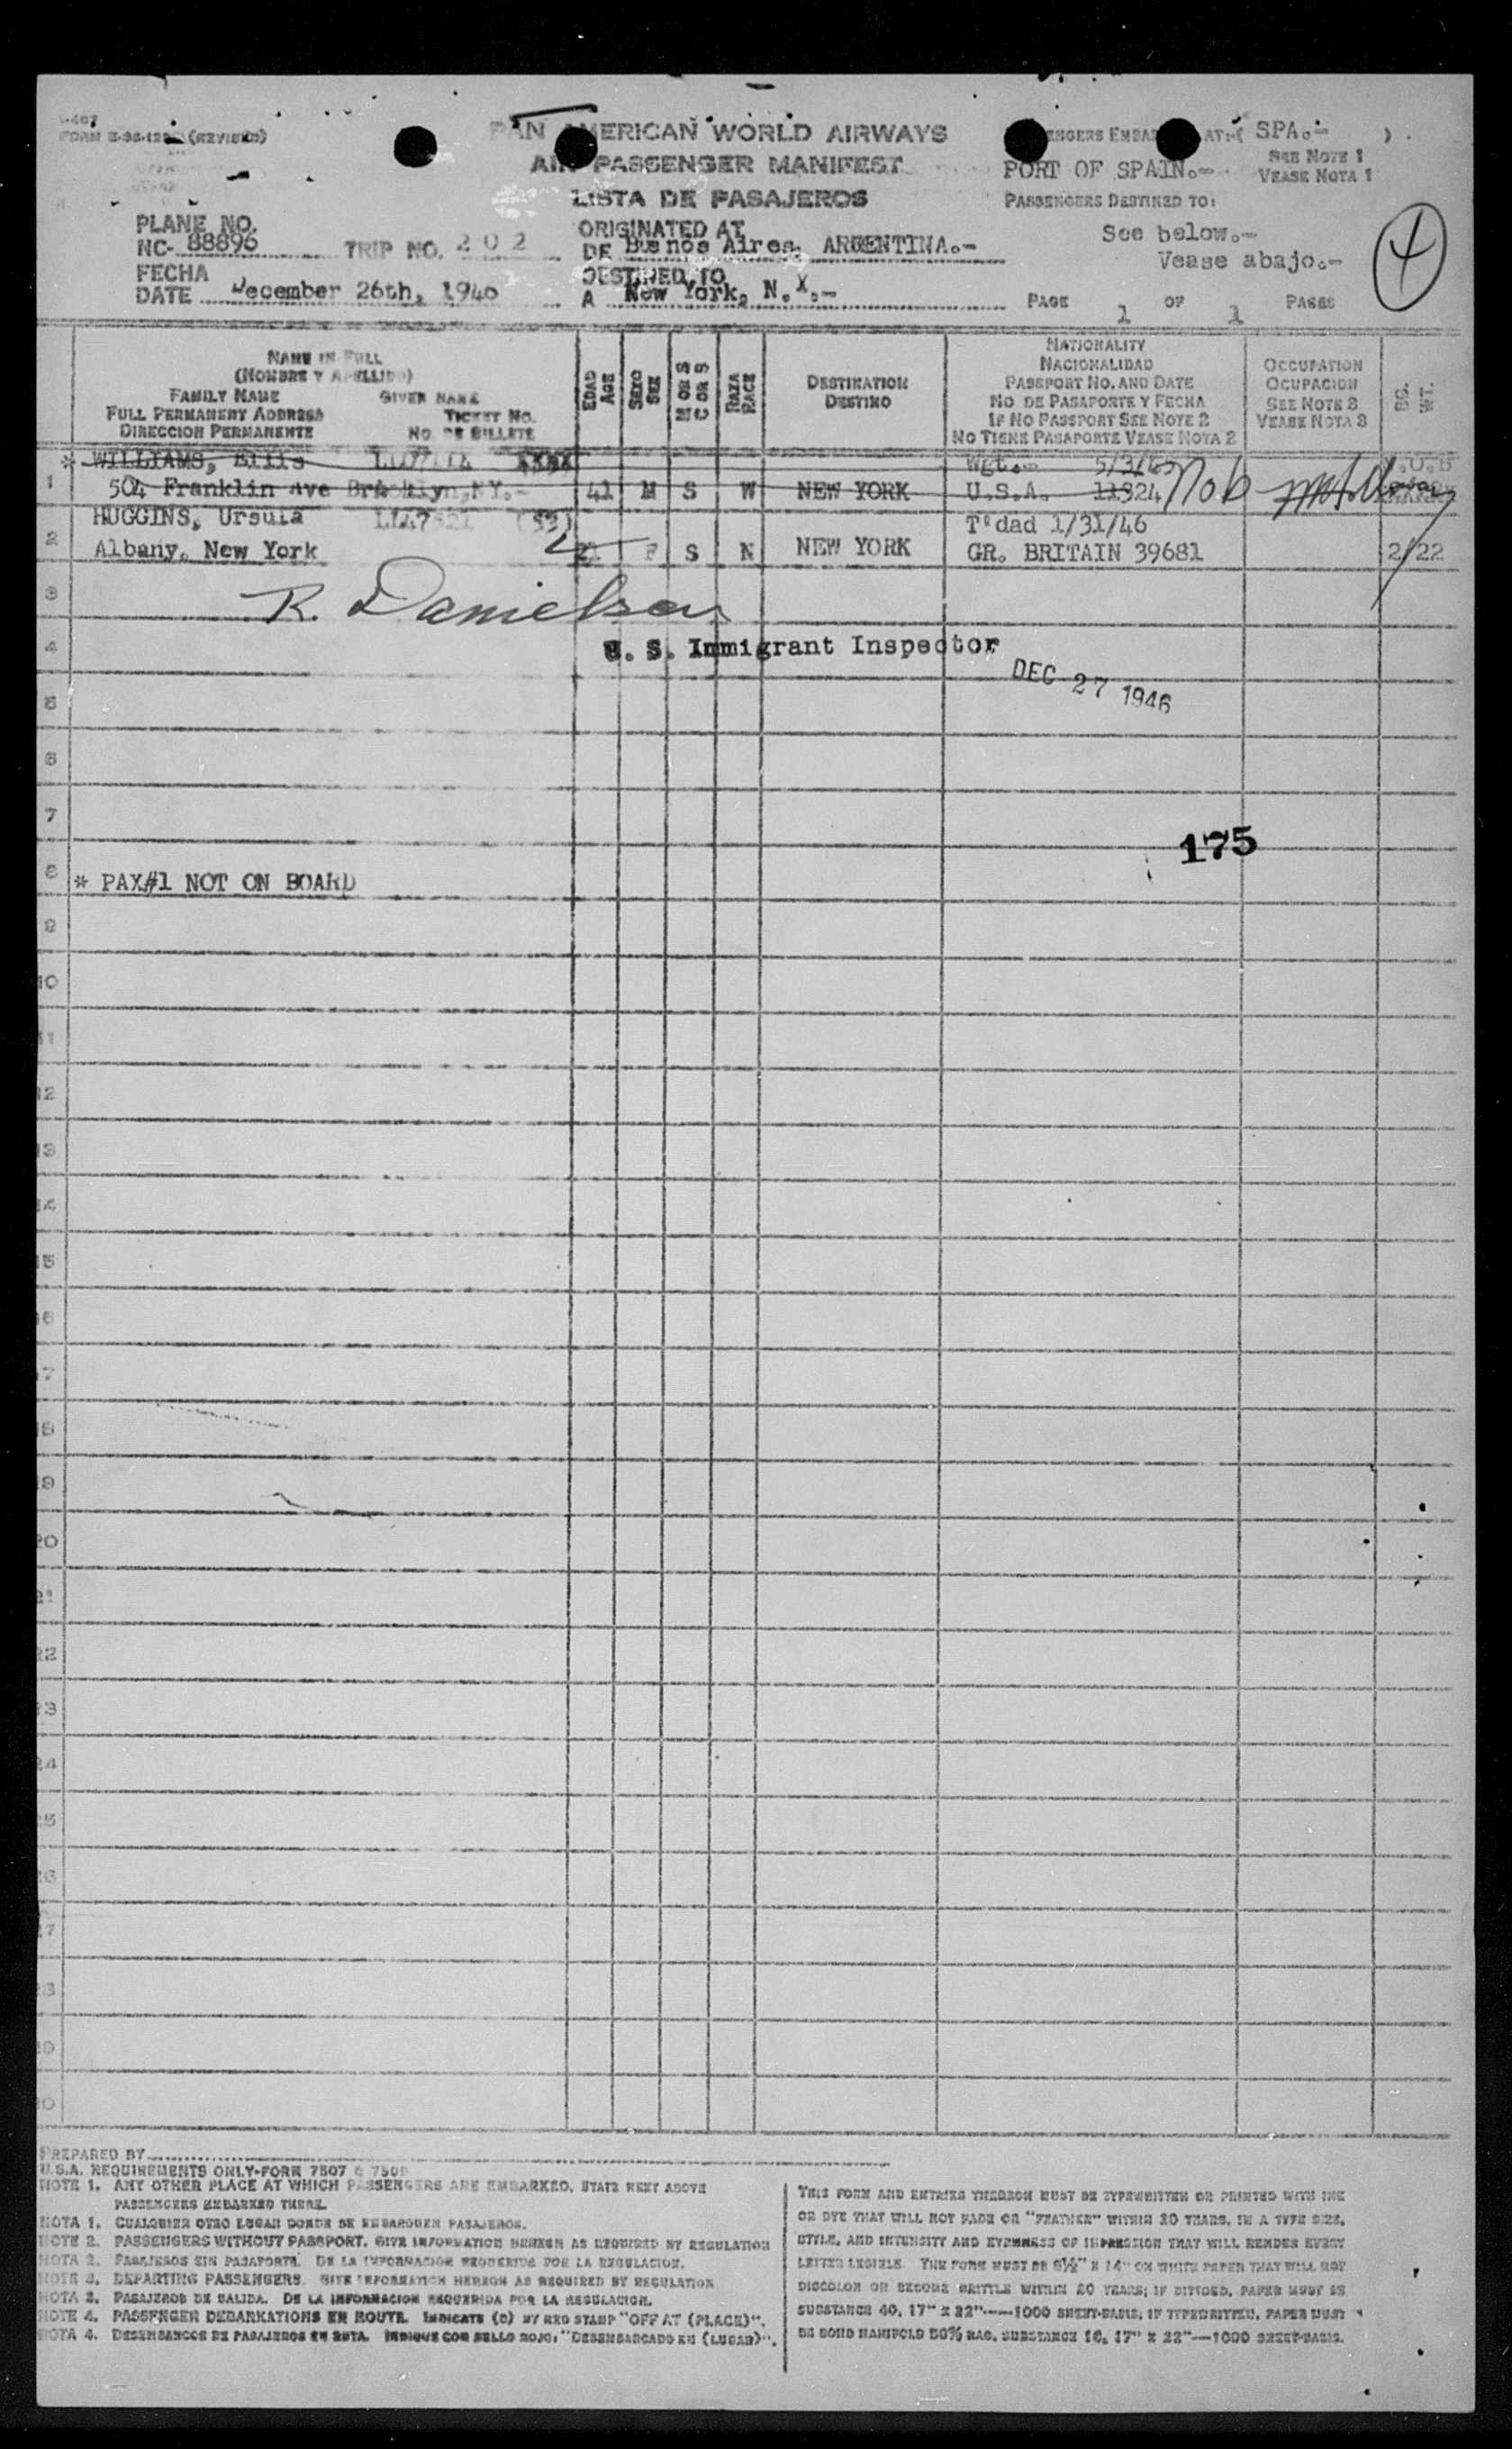 (REVISED)
PAN AMERICAN WORLD AIRWAYS
AIR PASSENGER MANIFEST
LISTA DE PASAJEROS
AT:( SPA.- ) .
PORT OF SPAIN.-
SEE NOTE 1
VEASE NOTA 1
PASSENGERS DESTINED TO:
See below.-
Vease abajo.-
4
PLANE NO.
NC- 88896
TRIP NO. 202
ORIGINATED AT
DE Buenos Aires, ARGENTINA.-
FECHA
DATE December 26th, 1946
DESTINED TO
A New York, N.Y.-
PAGE 1 OF 1 PAGES
NAME IN FULL
(NOMBRE Y APELLIDO)
FAMILY NAME GIVEN NAME
FULL PERMANENT ADDRESS TICKET NO.
DIRECCION PERMANENTE NO. DE BILLETE
EDAD
AGE
SEXO
SEX
M OR S
C OR S
RAZA
RACE
DESTINATION
DESTINO
NATIONALITY
NACIONALIDAD
PASSPORT NO. AND DATE
NO DE PASAPORTE Y FECHA
IF NO PASSPORT SEE NOTE 2
NO TIENE PASAPORTE VEASE NOTA 2
OCCUPATION
OCUPACION
SEE NOTE 3
VEASE NOTA 3
BG.
WT.
* WILLIAMS, Ellis XXXX
1 504 Franklin Ave Brooklyn, NY.- 41 M S W NEW YORK U.S.A. 11924 Nob
HUGGINS, Ursula T'dad 1/31/46
2 Albany, New York F S N NEW YORK GR. BRITAIN 39681 2/22
3
R. Danielson
4
U. S. Immigrant Inspector
DEC 27 1946
5
6
7
175
8 * PAX#1 NOT ON BOARD
9
10
11
12
13
14
15
16
17
18
19
20
21
22
23
24
25
26
27
28
29
30
PREPARED BY
U.S.A. REQUIREMENTS ONLY-FORM 7507 & 7508
NOTE 1. ANY OTHER PLACE AT WHICH PASSENGERS ARE EMBARKED, STATE NEXT ABOVE
PASSENGERS EMBARKED THERE.
NOTA 1. CUALQUIER OTRO LUGAR DONDE SE EMBARQUEN PASAJEROS.
NOTE 2. PASSENGERS WITHOUT PASSPORT, GIVE INFORMATION HEREON AS REQUIRED BY REGULATION
NOTA 2. PASAJEROS SIN PASAPORTE. DE LA INFORMACION REQUERIDA POR LA REGULACION.
NOTE 3. DEPARTING PASSENGERS. GIVE INFORMATION HEREON AS REQUIRED BY REGULATION
NOTA 3. PASAJEROS DE SALIDA. DE LA INFORMACION REQUERIDA POR LA REGULACION.
NOTE 4. PASSENGER DEBARKATIONS EN ROUTE. INDICATE (0) BY RED STAMP "OFF AT (PLACE)".
NOTA 4. DESEMBARCOS DE PASAJEROS EN RUTA. INDIQUE CON SELLO ROJO: "DESEMBARCADO EN (LUGAR)".
THIS FORM AND ENTRIES THEREON MUST BE TYPEWRITTEN OR PRINTED WITH INK
OR DYE THAT WILL NOT FADE OR "FEATHER" WITHIN 20 YEARS, IN A TYPE SIZE,
STYLE, AND INTENSITY AND EVENNESS OF IMPRESSION THAT WILL RENDER EVERY
LETTER LEGIBLE. THE FORM MUST BE 8½" X 14" ON WHITE PAPER THAT WILL NOT
DISCOLOR OR BECOME BRITTLE WITHIN 20 YEARS; IF DITTOED, PAPER MUST BE
SUBSTANCE 40, 17" X 22"——1000 SHEET-BASIS; IF TYPEWRITTEN, PAPER MUST
BE BOND MANIFOLD 50% RAG, SUBSTANCE 16, 17" X 22"—1000 SHEET-BASIS.